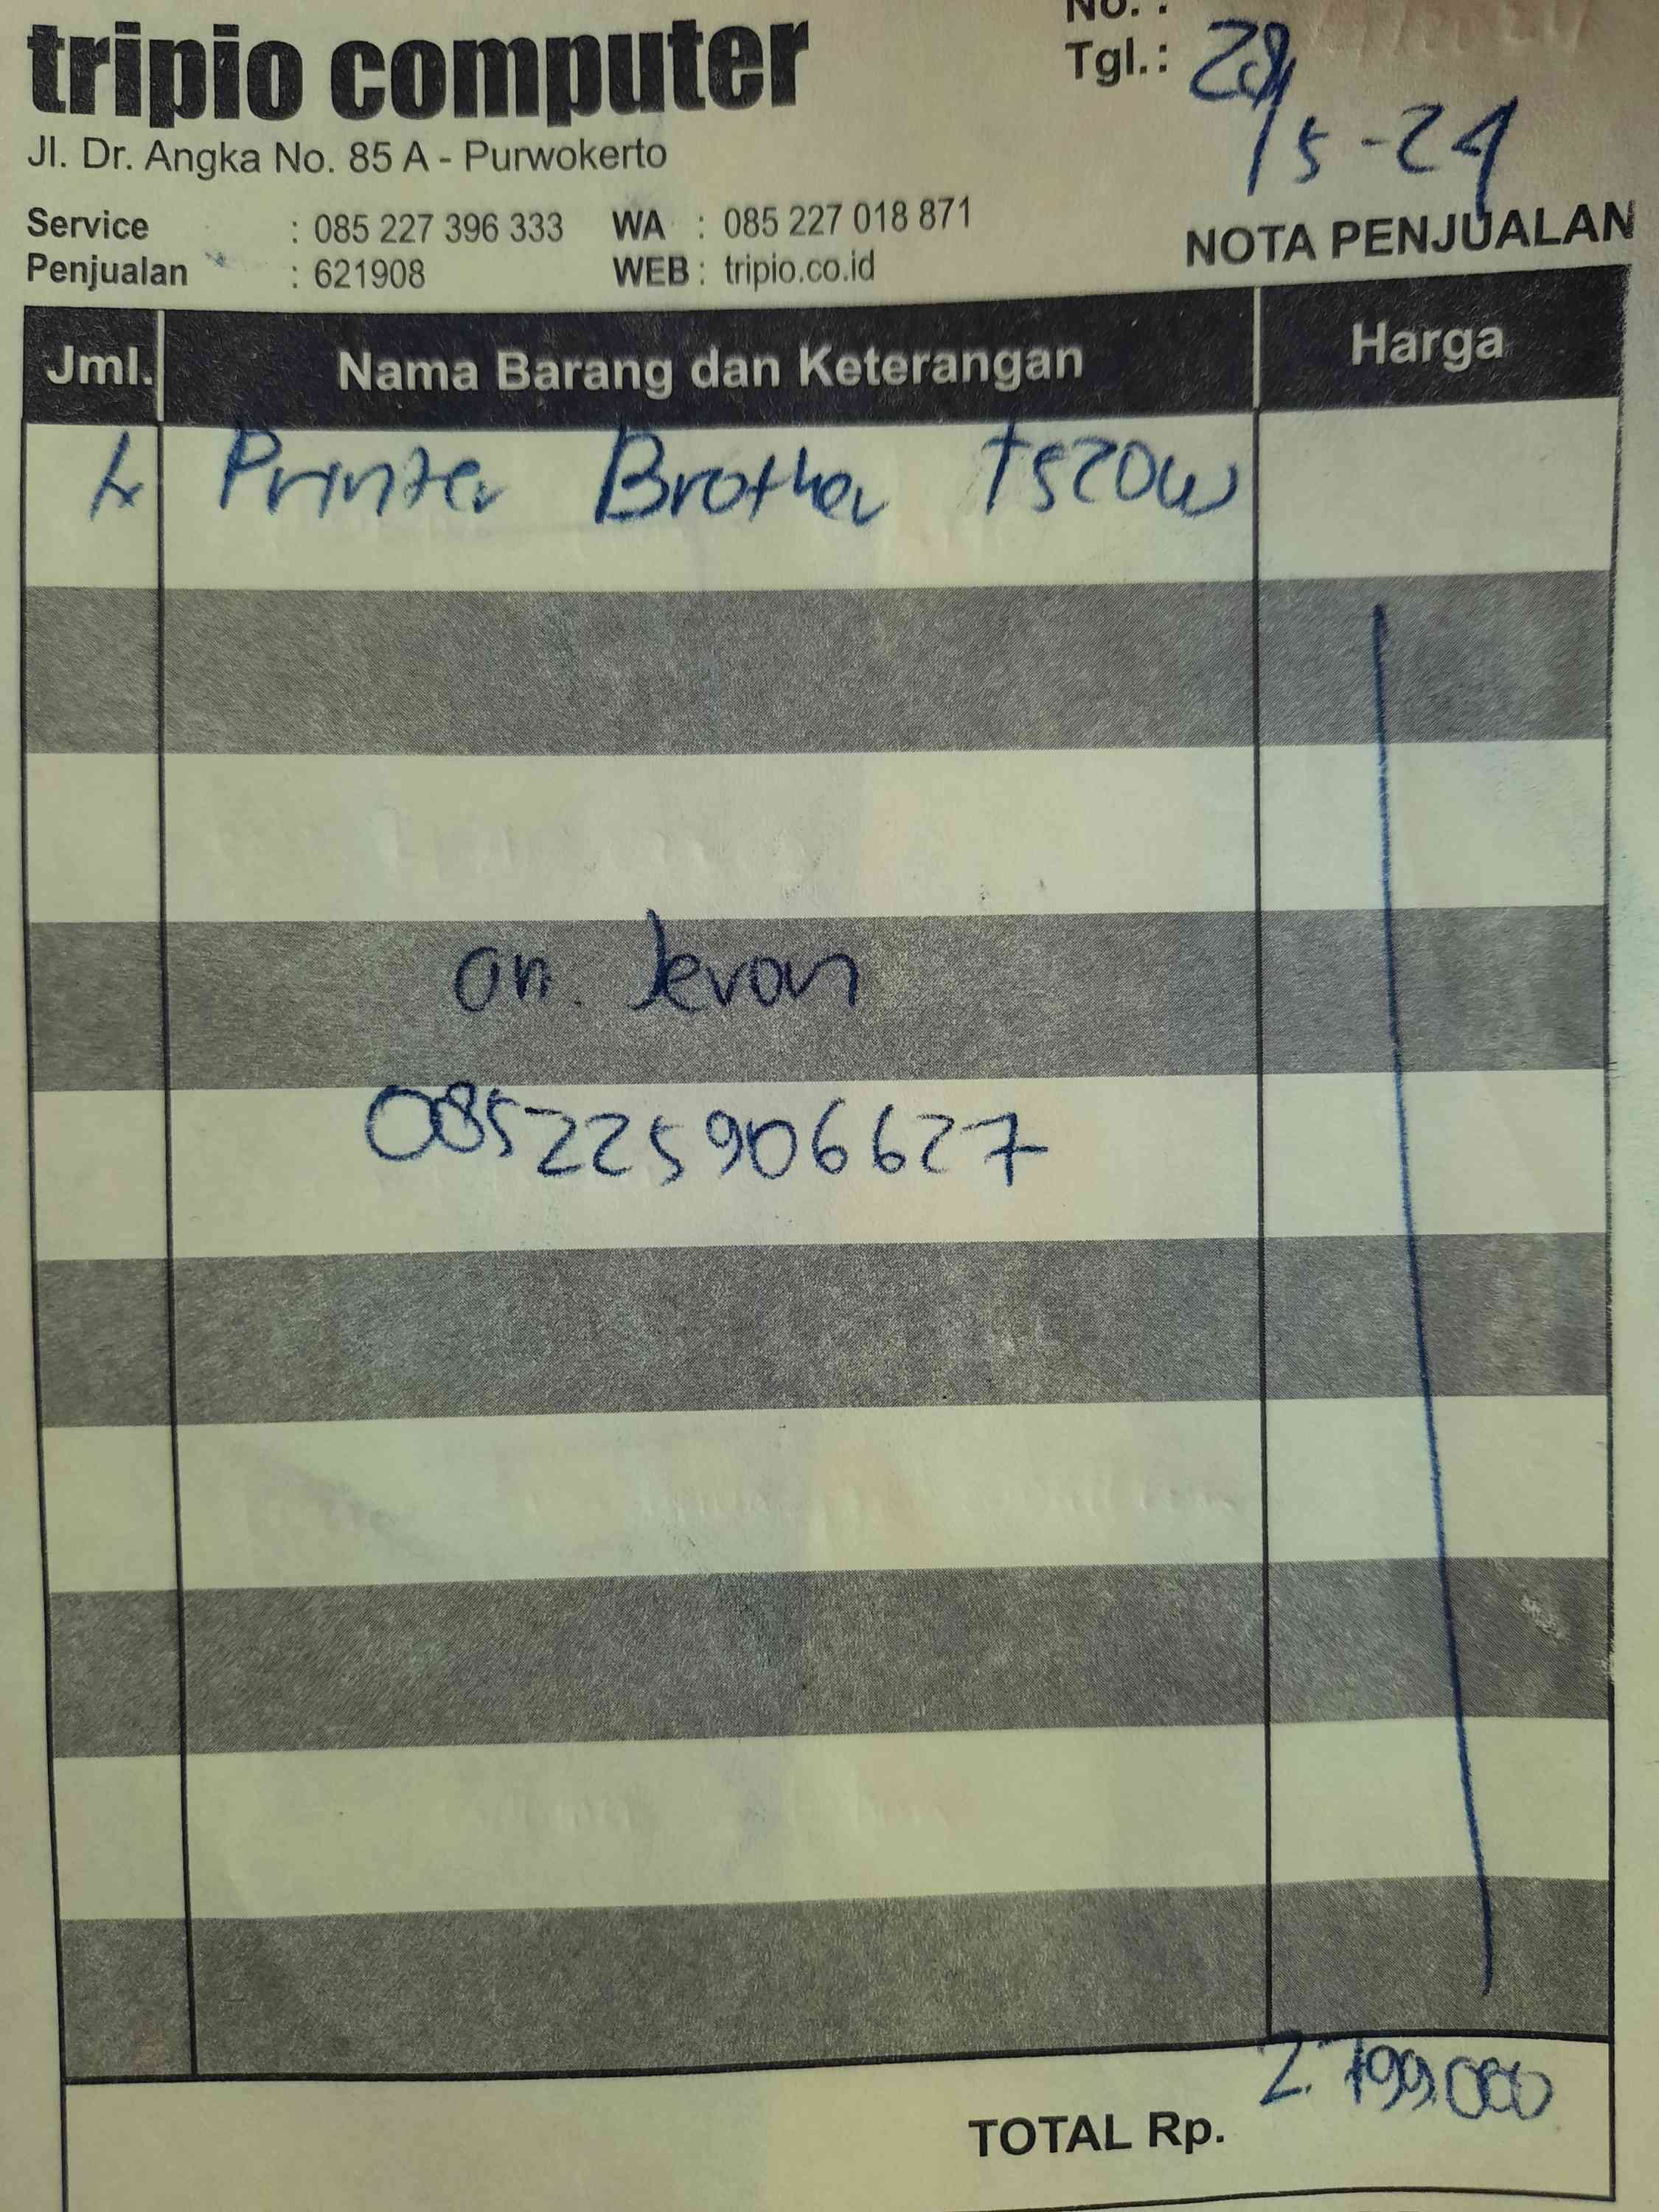 tripio computer
No. :
Tgl.: 28/5-24
Jl. Dr. Angka No. 85 A - Purwokerto
Service : 085 227 396 333 WA : 085 227 018 871
Penjualan : 621908 WEB : tripio.co.id
NOTA PENJUALAN
Jml. Nama Barang dan Keterangan Harga
Printer Brother T520W
an. Jevon
085225906627
TOTAL Rp. 2.799.000